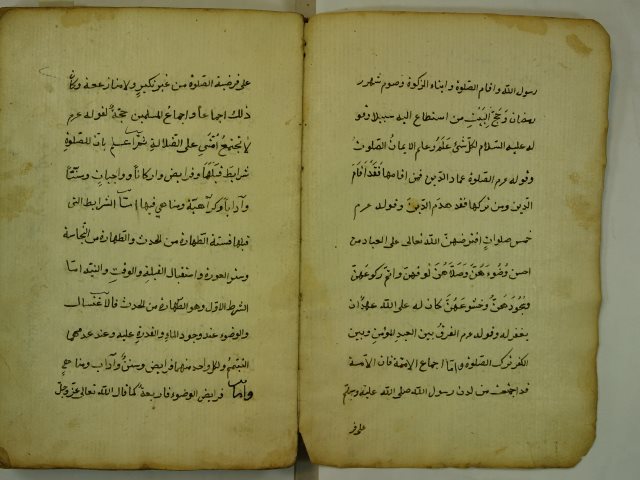 رسول الله واقام الصلوة وايتاء الزكوة وصوم شهور
رمضان وحج البيت من استطاع اليه سبيلا وقو
له عليه السلام لكل شئ علم وعلم الايمان الصلوت
وقوله عم الصلوة عماد الدين فمن اقامها فقد اقام
الدين ومن تركها فقد هدم الدين وقوله عم
خمس صلوات افترضهن الله تعالى على العباد من
احسن وضوءهن وصلاهن لوقتهن واتم ركوعهن
وسجودهن وخشوعهن كان له على الله عهدا ان
يغفر له وقوله عم الفرق بين العبد المؤمن وبين
الكفر ترك الصلوة واما اجماع الامة فان الامة
قد اجتمعت من لدن رسول الله صلى الله عليه وسلم
على فر
على فرضية الصلوة من غير نكير ولا منازعة وكان
ذلك اجماعا واجماع المسلمين حجة لقوله عم
لا تجتمع امتى على الضلالة ثم اعلم بان للصلوة
شرائط قبلها وفرايض واركانا وواجبات وسننا
وآدابا وكراهية ومناهى فيها اما الشرايط التى
قبلها فستة الطهارة من الحدث والطهارة من النجاسة
وستر العورة واستقبال القبلة والوقت والنية اما
الشرط الاول وهو الطهارة من الحدث فالاغتسال
والوضوء عند وجود الماء والقدرة عليه وعند عدمهما
التيمم ولكل واحد منها فرايض وسنن وآداب ومناهى
واما فرايض الوضوء فاربعة كما قال الله تعالى عز وجل